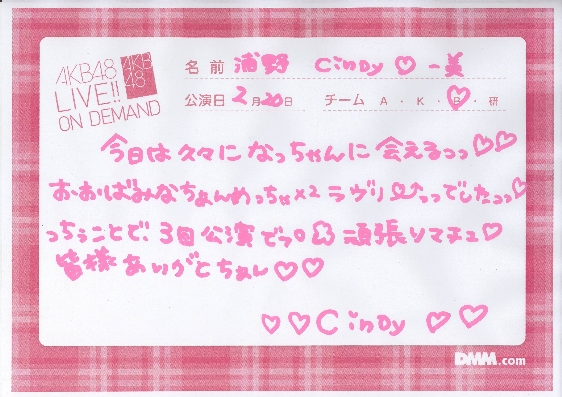 AKB48
LIVE!!
ON DEMAND
AKB
48
名前 浦野 Cindy♡一美
公演日 2月20日 チーム A・K・B・研
今日は久々になっちゃんに会えるっっ♡♡
おおばみなちょんめっちゃ×2 ラヴリでしたっっ♡
っちぅことで、3回公演でっ。頑張りマチュ♡
皆様ありがとちょん♡♡
♡♡Cindy♡♡
DMM.com